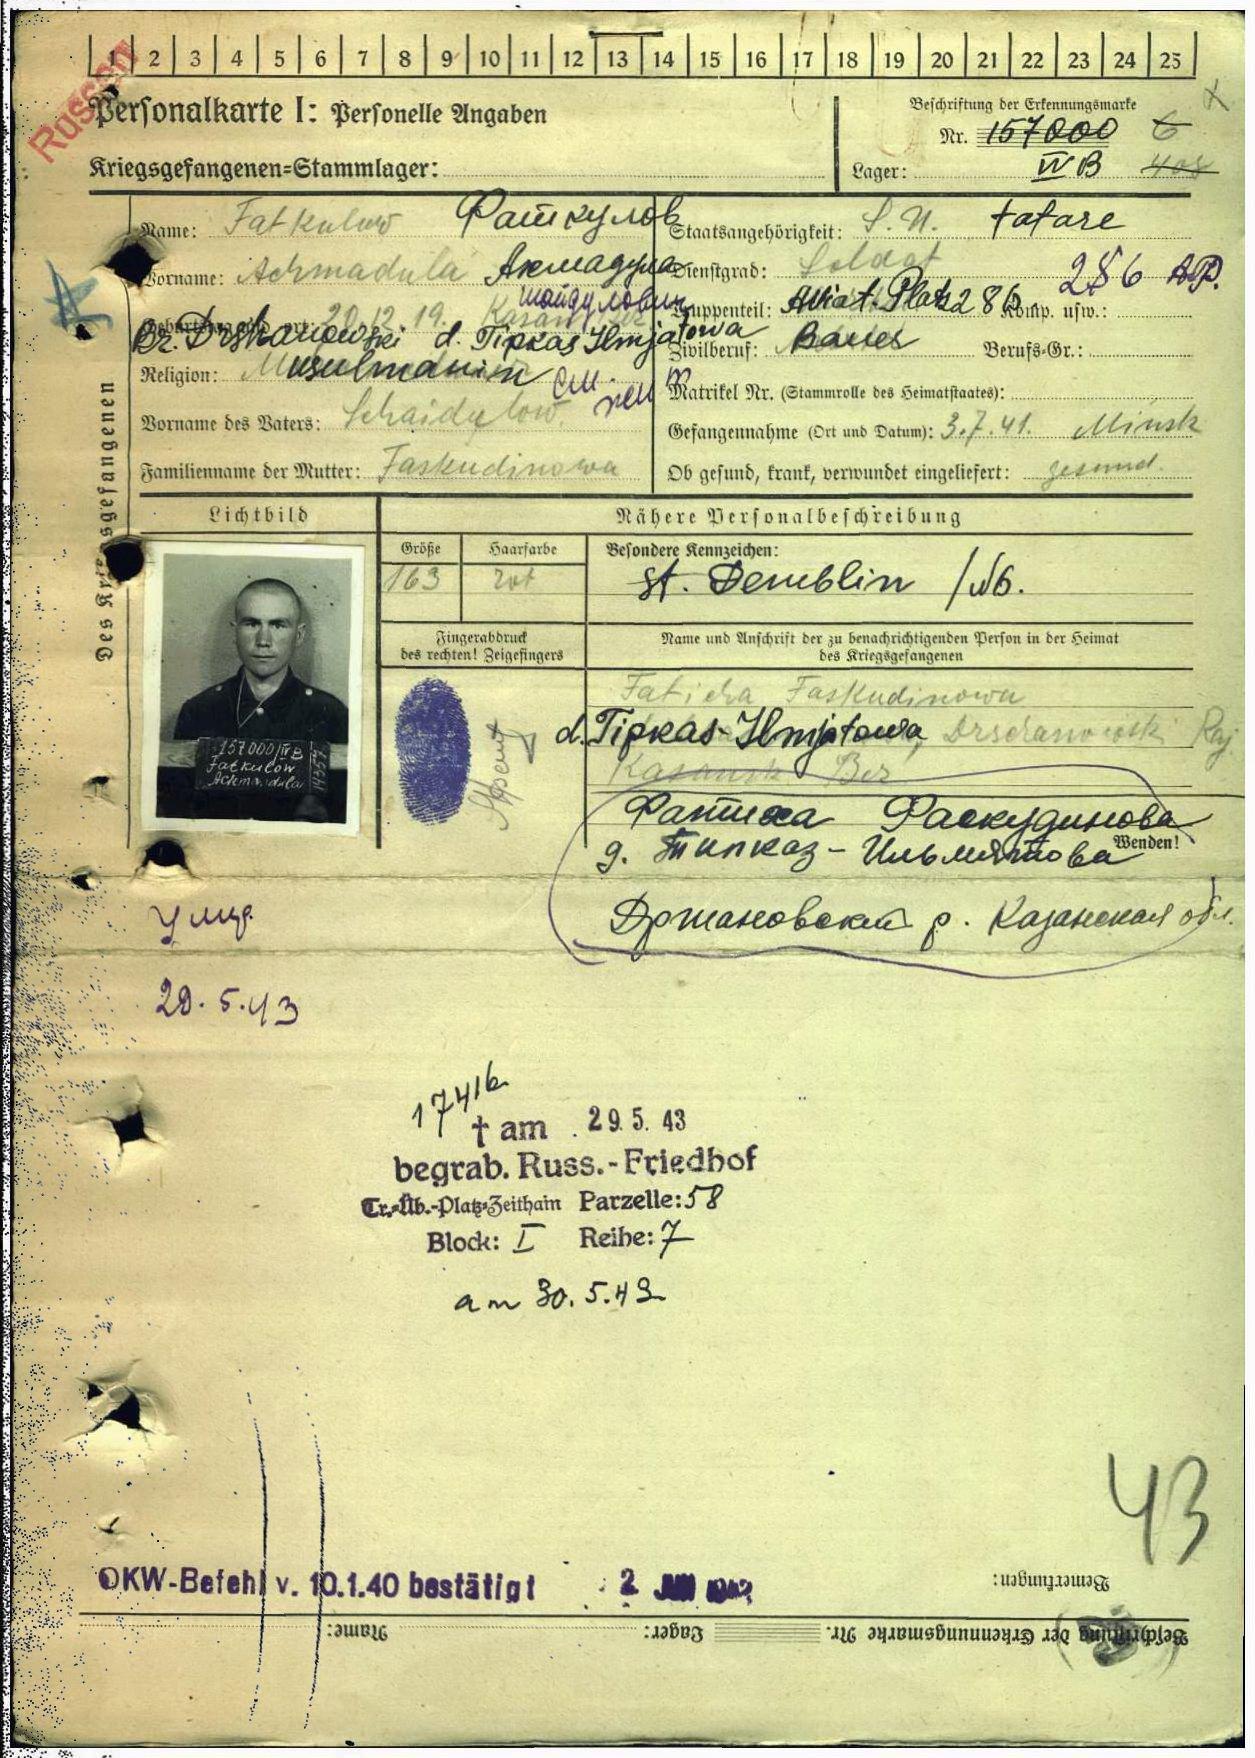 1 2 3 4 5 6 7 8 9 10 11 12 13 14 15 16 17 18 19 20 21 22 23 24 25
Russen
Personalkarte I: Personelle Angaben
Kriegsgefangenen=Stammlager:
Beschriftung der Erkennungsmarke
Nr. 157000
Lager: IV B
Des Kriegsgefangenen
Name: Fatkulow Фаткулов
Vorname: Achmadula Акмадула
Шайдулович
20.12.19. Kasan
d. Tipkas Ilmjatowa
Religion: Musulmanin
Vorname des Vaters: Schaidulow.
Familienname der Mutter: Faskudinowa
Staatsangehörigkeit: S.U. tatare
Dienstgrad: Soldat
286 А.Р.
Truppenteil: Aviat. Platz 286 Komp. usw.:
Zivilberuf: Bauer Berufs-Gr.:
Matrikel Nr. (Stammrolle des Heimatstaates):
Gefangennahme (Ort und Datum): 3.7.41. Minsk
Ob gesund, krank, verwundet eingeliefert: gesund.
Lichtbild
Nähere Personalbeschreibung
Größe Haarfarbe Besondere Kennzeichen:
163 rot st. Demblin
Fingerabdruck
des rechten! Zeigefingers
Name und Anschrift der zu benachrichtigenden Person in der Heimat
des Kriegsgefangenen
Faticha Faskudinowa
d. Tipkas-Ilmjatowa Drschanowski Raj
Kasansk
157000/IV B
Fatkulow
Achmadula
Фатиха Фаскудинова
д. Типказ-Ильмятова
Wenden!
Држановский р. Казанская обл.
умер
29.5.43
17416
† am 29. 5. 43
begrab. Russ.-Friedhof
Tr.-Üb.-Platz-Zeithain Parzelle: 58
Block: I Reihe: 7
am 30.5.43
43
OKW-Befehl v. 10.1.40 bestätigt
Bemerkungen:
Beschriftung der Erkennungsmarke Nr. Lager: Name: